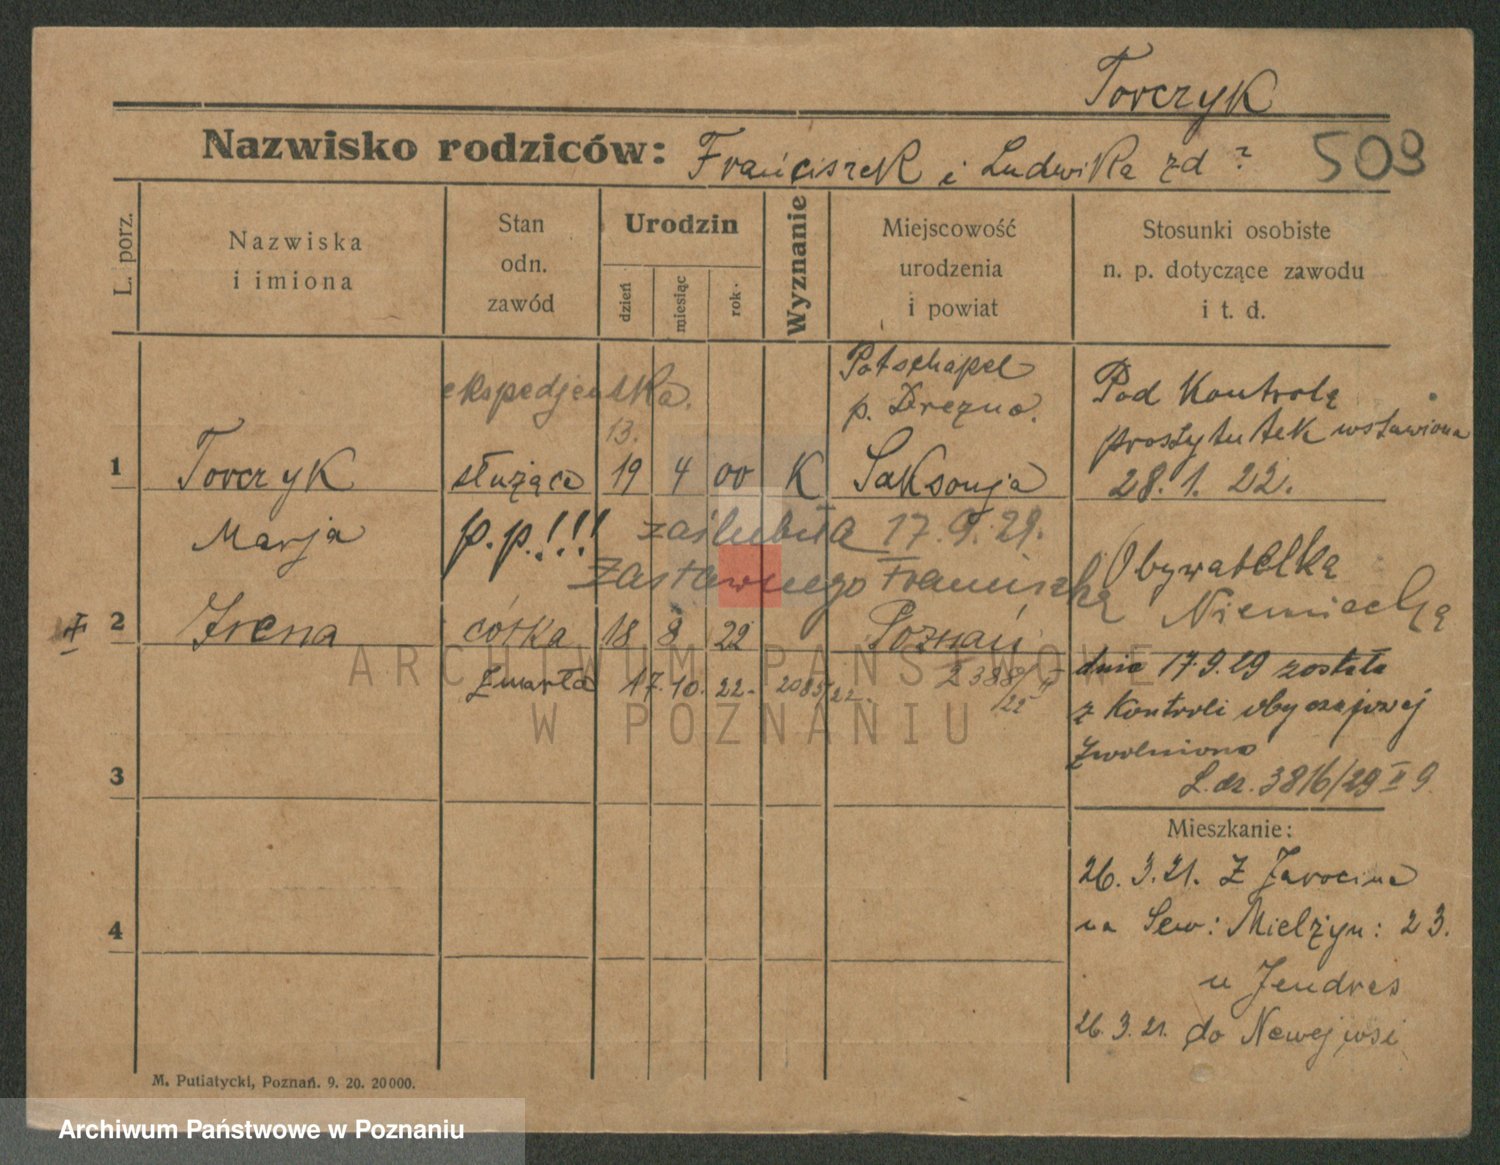 Torczyk
Nazwisko rodziców: Franciszek i Ludwika zd ? 509
L. porz.
Nazwiska
i imiona
Stan
odn.
zawód
Urodzin
dzień
miesiąc
rok.
Wyznanie
Miejscowość
urodzenia
i powiat
Stosunki osobiste
n. p. dotyczące zawodu
i t. d.
ekspedjentka.
13.
Potschapel
p. Drezno.
1 Torczyk służąca 19 4 00 K Saksonja
Marja p.p.!!! zaślubiła 17.9.29.
Zastawnego Franciszka
2 Irena córka 18 8 22 Poznań
Zmarła 17. 10. 22. 2085/22. 2388/22 II
3
4
Pod Kontrolą
prostytutek wstawiona
28. 1. 22.
Obywatelką
Niemiecką
dnia 17.9.29 została
z Kontroli obyczajowej
zwolniona
L. dz. 3816/29 II 9.
Mieszkanie:
26. 3. 21. Z Jarocina
na Sew: Mielżyn: 23.
u Jendras
26. 3. 21. do Nowejwsi
M. Putiatycki, Poznań. 9. 20. 20000.
ARCHIWUM PAŃSTWOWE
W POZNANIU
Archiwum Państwowe w Poznaniu